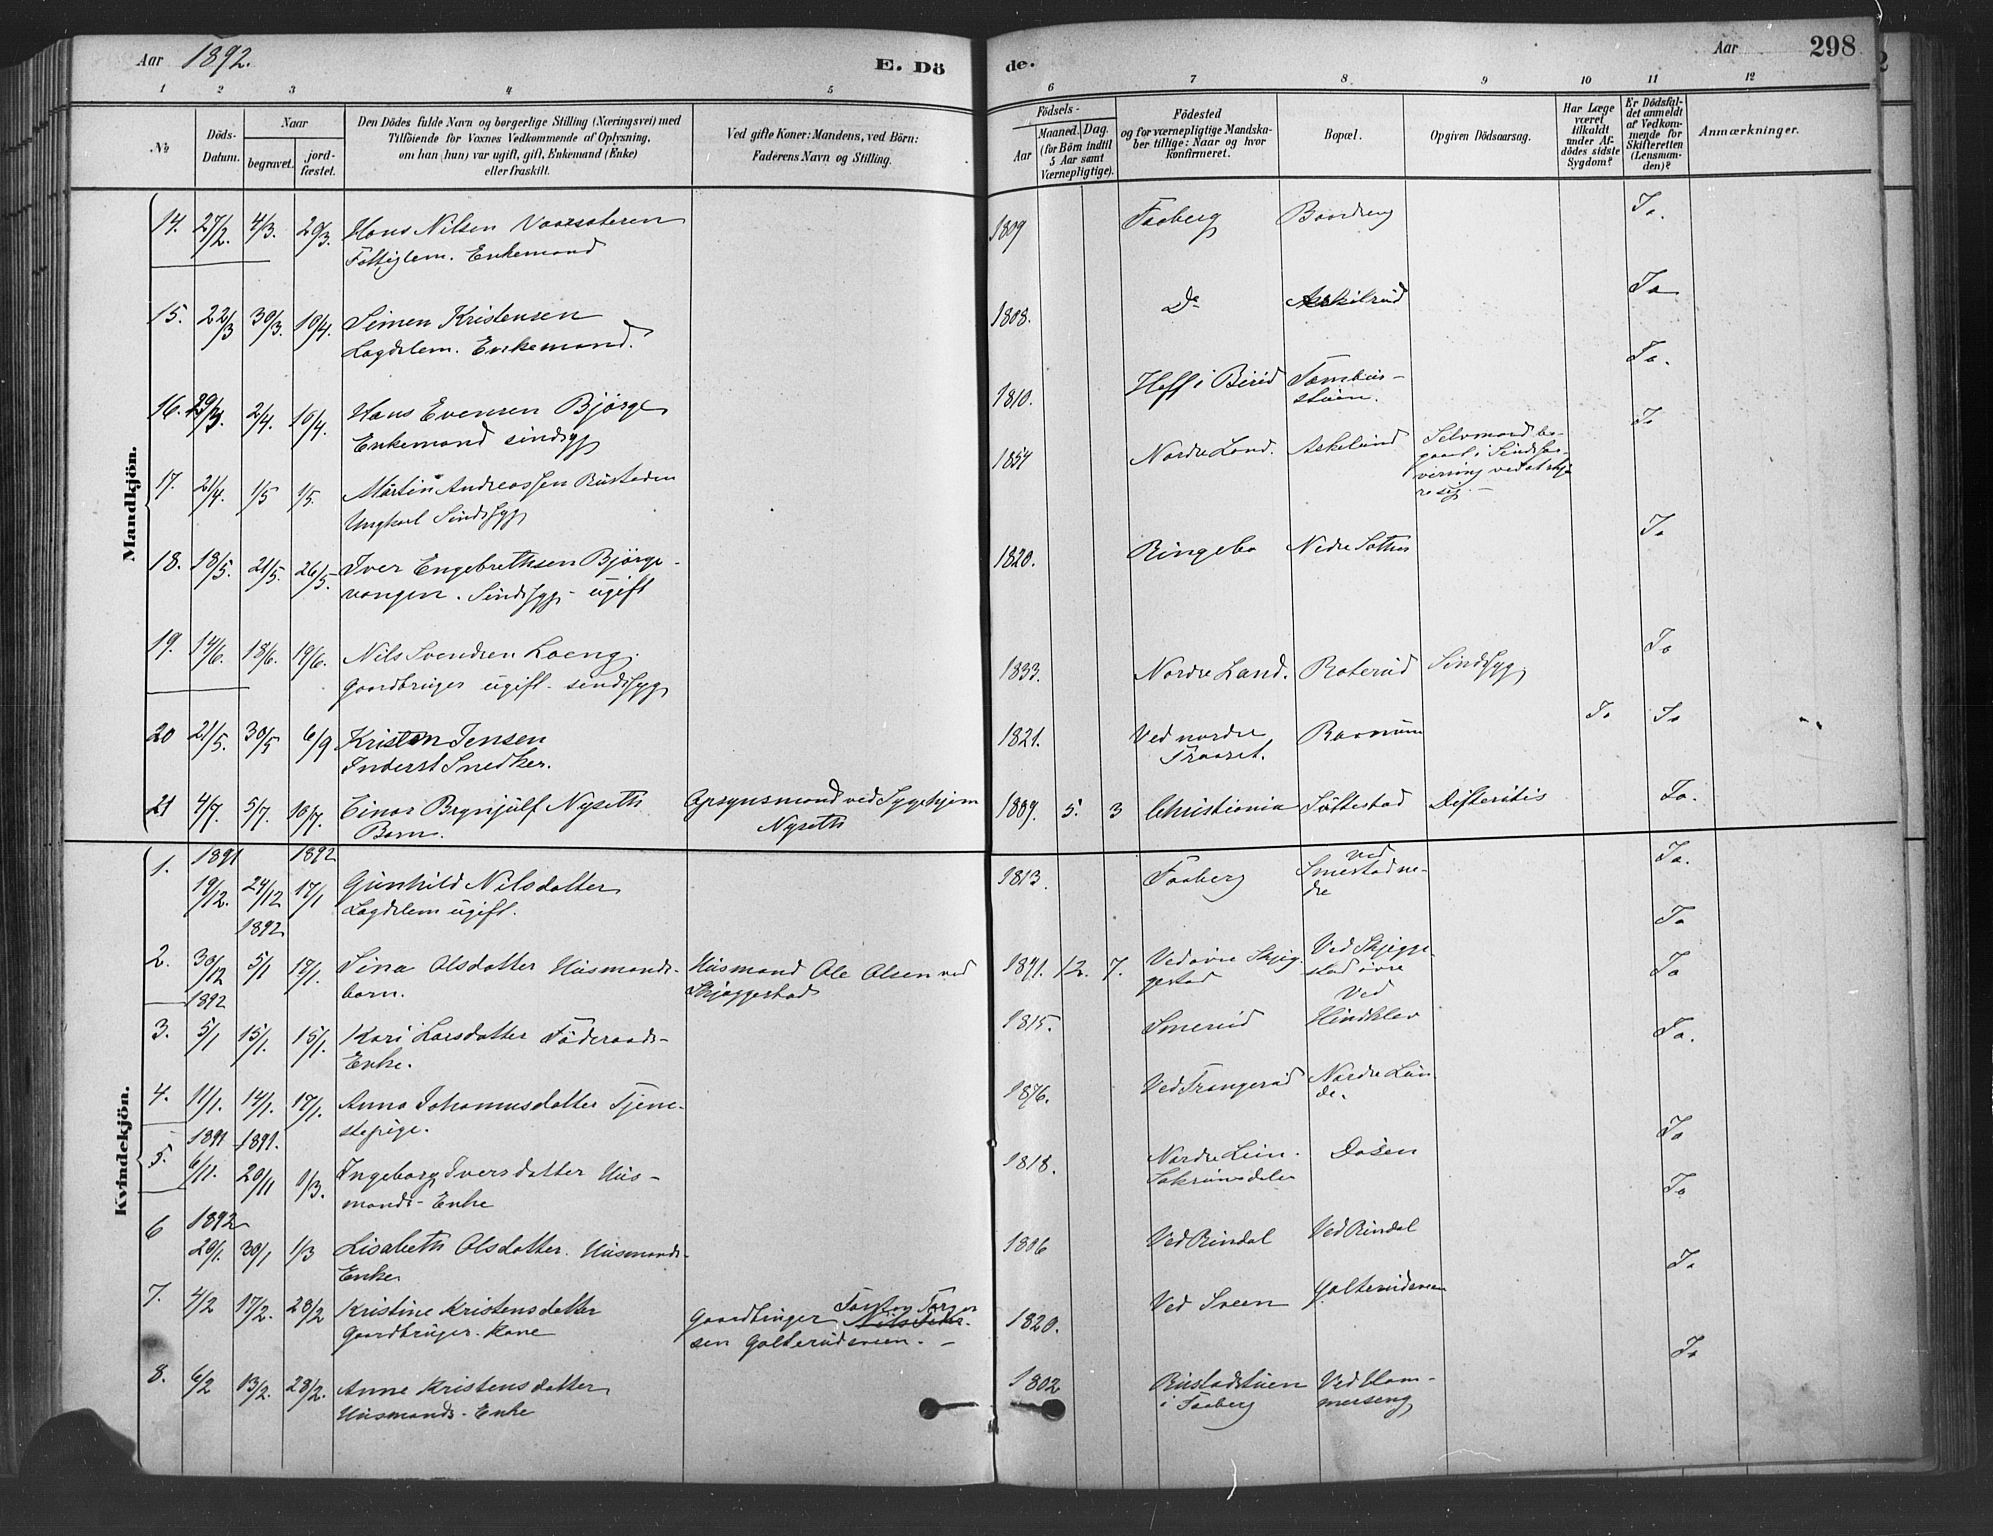 Aar 1892. E. Dö
de. Aar 298
1 2 3 4 5 6 7 8 9 10 11 12
No
Döds-Datum.
Naar
begravet.
jord-fæstet.
Den Dödes fulde Navn og borgerlige Stilling (Næringsvei) med
Tilföiende for Voxnes Vedkommende af Oplysning,
om han (hun) var ugift, gift, Enkemand (Enke)
eller fraskilt.
Ved gifte Koner: Mandens, ved Börn:
Faderens Navn og Stilling.
Födsels-
Aar
Maaned. Dag.
(for Börn indtil
5 Aar samt
Værnepligtige).
Födested
og for værnepligtige Mandska-
ber tillige: Naar og hvor
konfirmeret.
Bopæl.
Opgiven Dödsaarsag.
Har Læge
været
tilkaldt
under Af-
dödes sidste
Sygdom?
Er Dödsfal-
det anmeldt
af Vedkom-
mende for
Skifteretten
(Lensman-
den)?
Anmærkninger.
Mandkjön.
14. 27/2. 4/3. 20/3. Hans Nilsen Vaarsæteren 1809 Faaberg Baadseng Ja.
Fattiglem. Enkemand
15. 22/3 30/3. 10/4. Simen Kristensen 1808. Do Askilrud Ja
Lægdslem. Enkemand.
16. 29/3. 2/4. 10/4. Hans Evensen Bjørge 1810. Hoff i Birid Ja.
Enkemand sindsyg
17. 21/4. 1/5 1/5. Martin Andreassen Rustaden 1854 Nordre Land. Askelund Selvmord be-
gaaet i Sindsfor-
virring ved at skjæ-
re sig. Ja
Ungkarl Sindssyg
18. 18/5. 21/5. 26/5. Iver Engebrethsen Bjørge- 1820. Ringebo Nedre Ja
vangen. Sindssyg - ugift
19. 14/6. 18/6. 19/6. Nils Svendsen Loeng. 1833. Nordre Land. Roterud Sindssyg Ja
Gaardbruger ugift - sindssyg
20 21/5. 30/5 6/9 Kristen Jensen 1821. Ved nordre
Traaset. Ja Ja
Inderst Snedker.
21 4/7. 5/7. 10/7. Einar Brynjulf Nyseth Opsynsmand ved Sygehjem 1889. 5. 3 Christiania Søttestad Defteritis Ja.
Barn. Nyseth
Kvindekjön.
1891 1892
1. 19/12. 24/12 17/1 Gunhild Nilsdatter 1813. Faaberg ved
Smestad ne-
dre Ja.
Lægdslem ugift.
1892
2. 30/12 5/1 17/1. Sina Olsdatter Husmands- Husmand Ole Olsen ved 1891. 12. 7. Ved øvre Skjeg-
gestad Ved Skjegge-
stad øvre Ja
barn. Skjæggestad
1892
3. 5/1 15/1. 15/1. Kari Larsdatter Føderaads- 1815. Smerud Ved
Hindklev Ja
Enke.
4. 11/1. 14/1. 17/1. Anna Johannesdatter Tjene- 1876. Ved Trangerud Nordre Lun-
de. Ja.
stepige.
1891 1891.
5. 6/11. 20/11 1/3. Ingeborg Iversdatter Hus- 1818. Nordre Lun. Dosen Ja
mands- Enke
1892
6 20/1. 30/1 1/3 Lisabeth Olsdatter. Husmands- 1806 Ved Rindal Ved Rindal Ja
Enke
7. 4/2 17/2. 28/2 Kristine Kristensdatter Gaardbruger Torger 1820. Ved Sveen Ja
Gaardbruger. Kone sen Galterudsveen. -
8. 6/2 13/2. 28/2. Anne Kristensdatter 1802 Rustadstuen
i Faaberg Ved Ham-
merseng Ja
Husmands- Enke